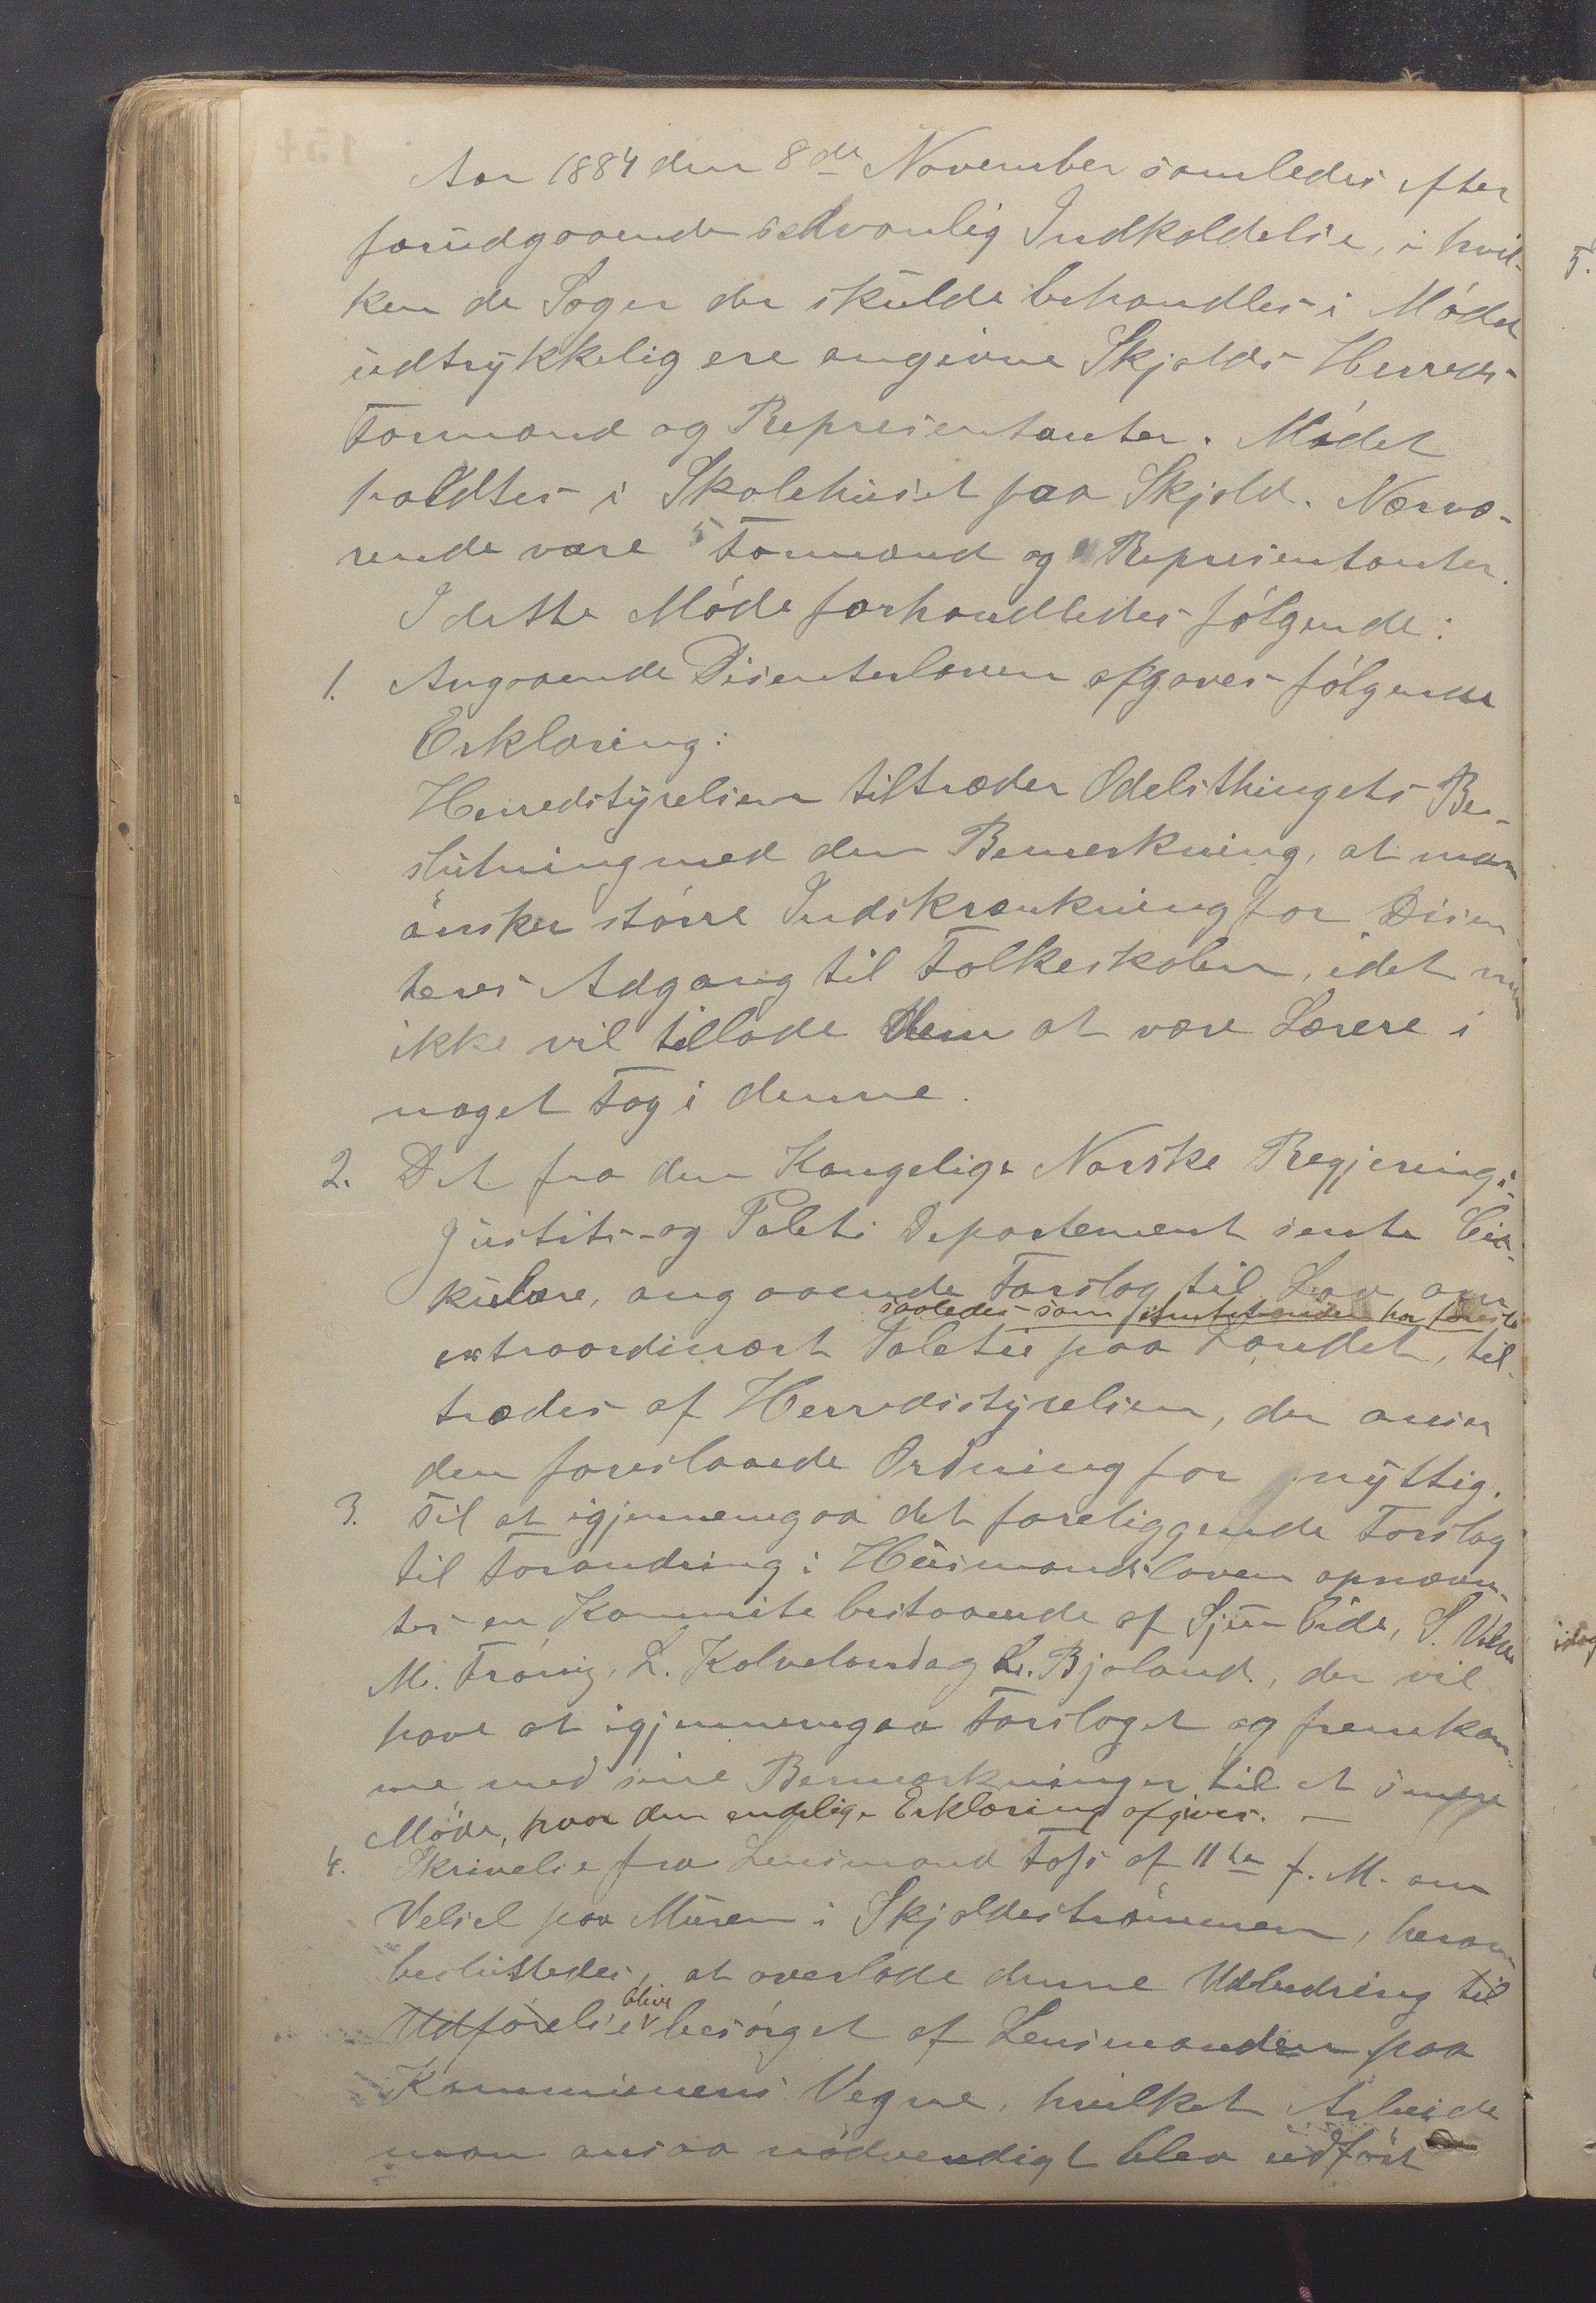 Aar 1884 den 8de November samledes efter
forudgaaende sedvanlig Indkaldelse, i hvil-
ken de Sager der skulde behandles i Mødet
udtrykkelig ere angivne Skjolds Herreds-
Formænd og Repræsentanter. Mødet
holdtes i Skolehuset paa Skjold. Nærvæ-
rende vare 5 Formænd og Repræsentanter.
I dette Møde forhandledes følgende:
1. Angaaende Disenterloven afgaves følgende
Erklæring:
Herredstyrelsen tiltræder Odelsthingets Be-
slutning med den Bemerkning, at man
ønsker større Indskrænkning for Disen-
teres Adgang til Folkeskolen, idet man
ikke vil tillade Dem at være Lærere i
noget Fag i denne.
2. Det fra den Kongelige Norske Regjerings
Justits- og Politi Departement sendte Cir-
kulære, angaaende Forslag til Lov om
saaledes som har
extraordinært Politie paa Landet, til-
trædes af Herredsstyrelsen, der anser
den foreslaaede Ordning for nyttig.
3. Til at igjennemgaa det foreliggende Forslag
til Forandring i Husmandsloven opnævn-
tes en Kommite bestaaende af Sjur Eide, S.
M. Frøvig, L. Kolveland og L. Bjoland, der vil
have at igjennemgaa Forslaget og fremkom-
me med sine Bemærkninger til et senere
Møde, hvor den endelige Erklæring afgives. —
4. Skrivelse fra Lensmand Foss af 11te f. M. om
Veisel paa Muren i Skjoldestrømmen, herom
besluttedes, at overlade denne Udbedring til
Udførelse blive besørget af Lensmanden paa
Kommunens Vegne, hvilket Arbeide
man ansaa nødvendigt blev udført
5.
idag